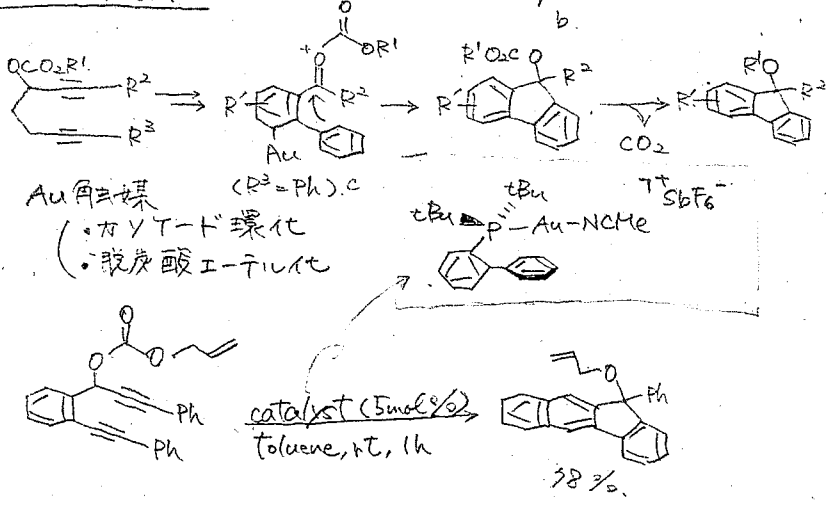 b.
O
OR¹
OCO₂R¹
R²
R³
+
O
R'
R²
Au
(R³=Ph).c
R¹O₂C
O
R²
R'
CO₂
R¹O
R²
R'
Au触媒
・カソケード環化
・脱炭酸エーテル化
tBu
tBu
P
Au-NCMe
⁺SbF₆⁻
O
O
O
Ph
Ph
catalyst (5mol%)
toluene, rt, 1h
O
Ph
98%.